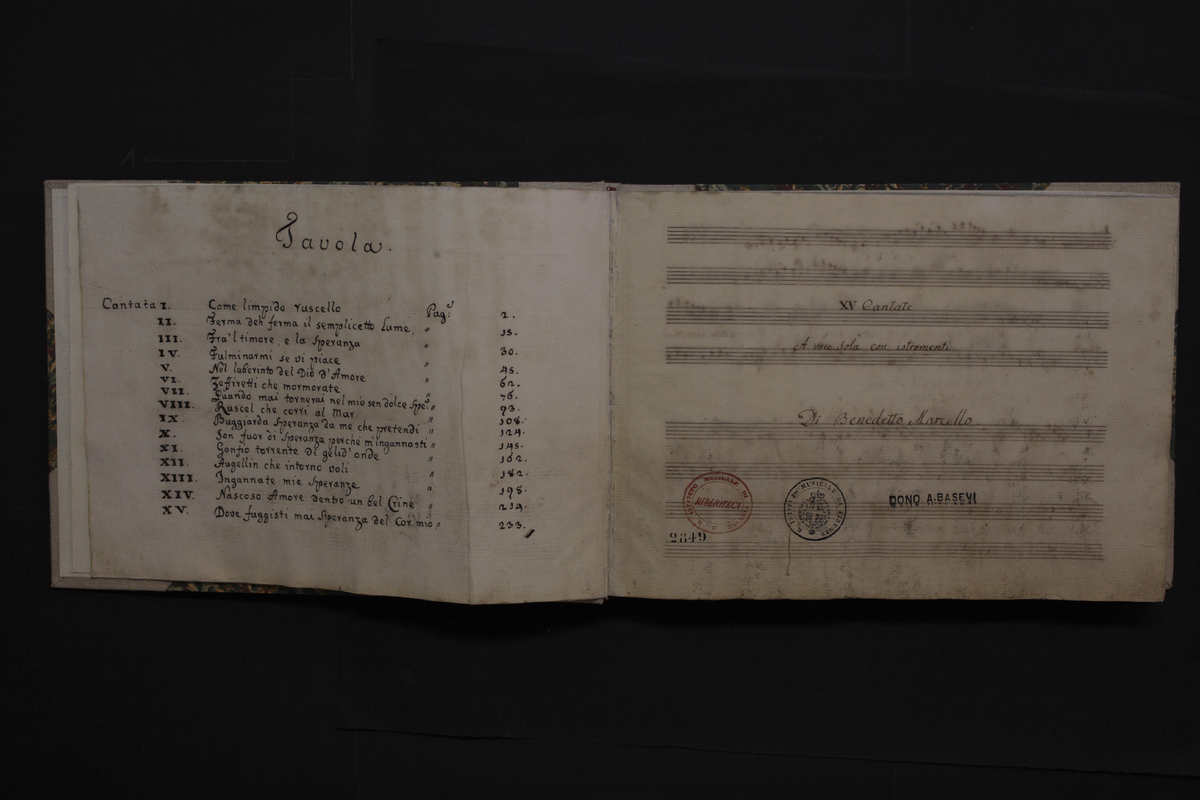 Tavola.
Cantata I. Come limpido ruscello Pag:e 2.
II. Ferma deh' ferma il semplicetto Lume, " 15.
III. Fra'l timore e la Speranza " 30.
IV. Fulminarmi se vi piace " 45.
V. Nel laberinto del Dio d'Amore " 62.
VI. Zeffiretti che mormorate " 76.
VII. Quando mai tornerai nel mio sen dolce Spe: " 93.
VIII. Ruscel che corri al Mar " 108.
IX. Buggiarda Speranza da me che pretendi " 124.
X. Son fuor di Speranza perche m'ingannasti " 145.
XI. Gonfio torrente di gelid'onde " 162.
XII. Augellin che intorno voli " 182.
XIII. Ingannate mie Speranze " 198.
XIV. Nascoso Amore dentro un bel Crine " 214.
XV. Dove fuggisti mai Speranza del Cor mio " 233.
XV Cantate
A voce sola con istromenti
Di Benedetto Marcello.
MUSICALE DI
BIBLIOTECA
DONO A. BASEVI
2849